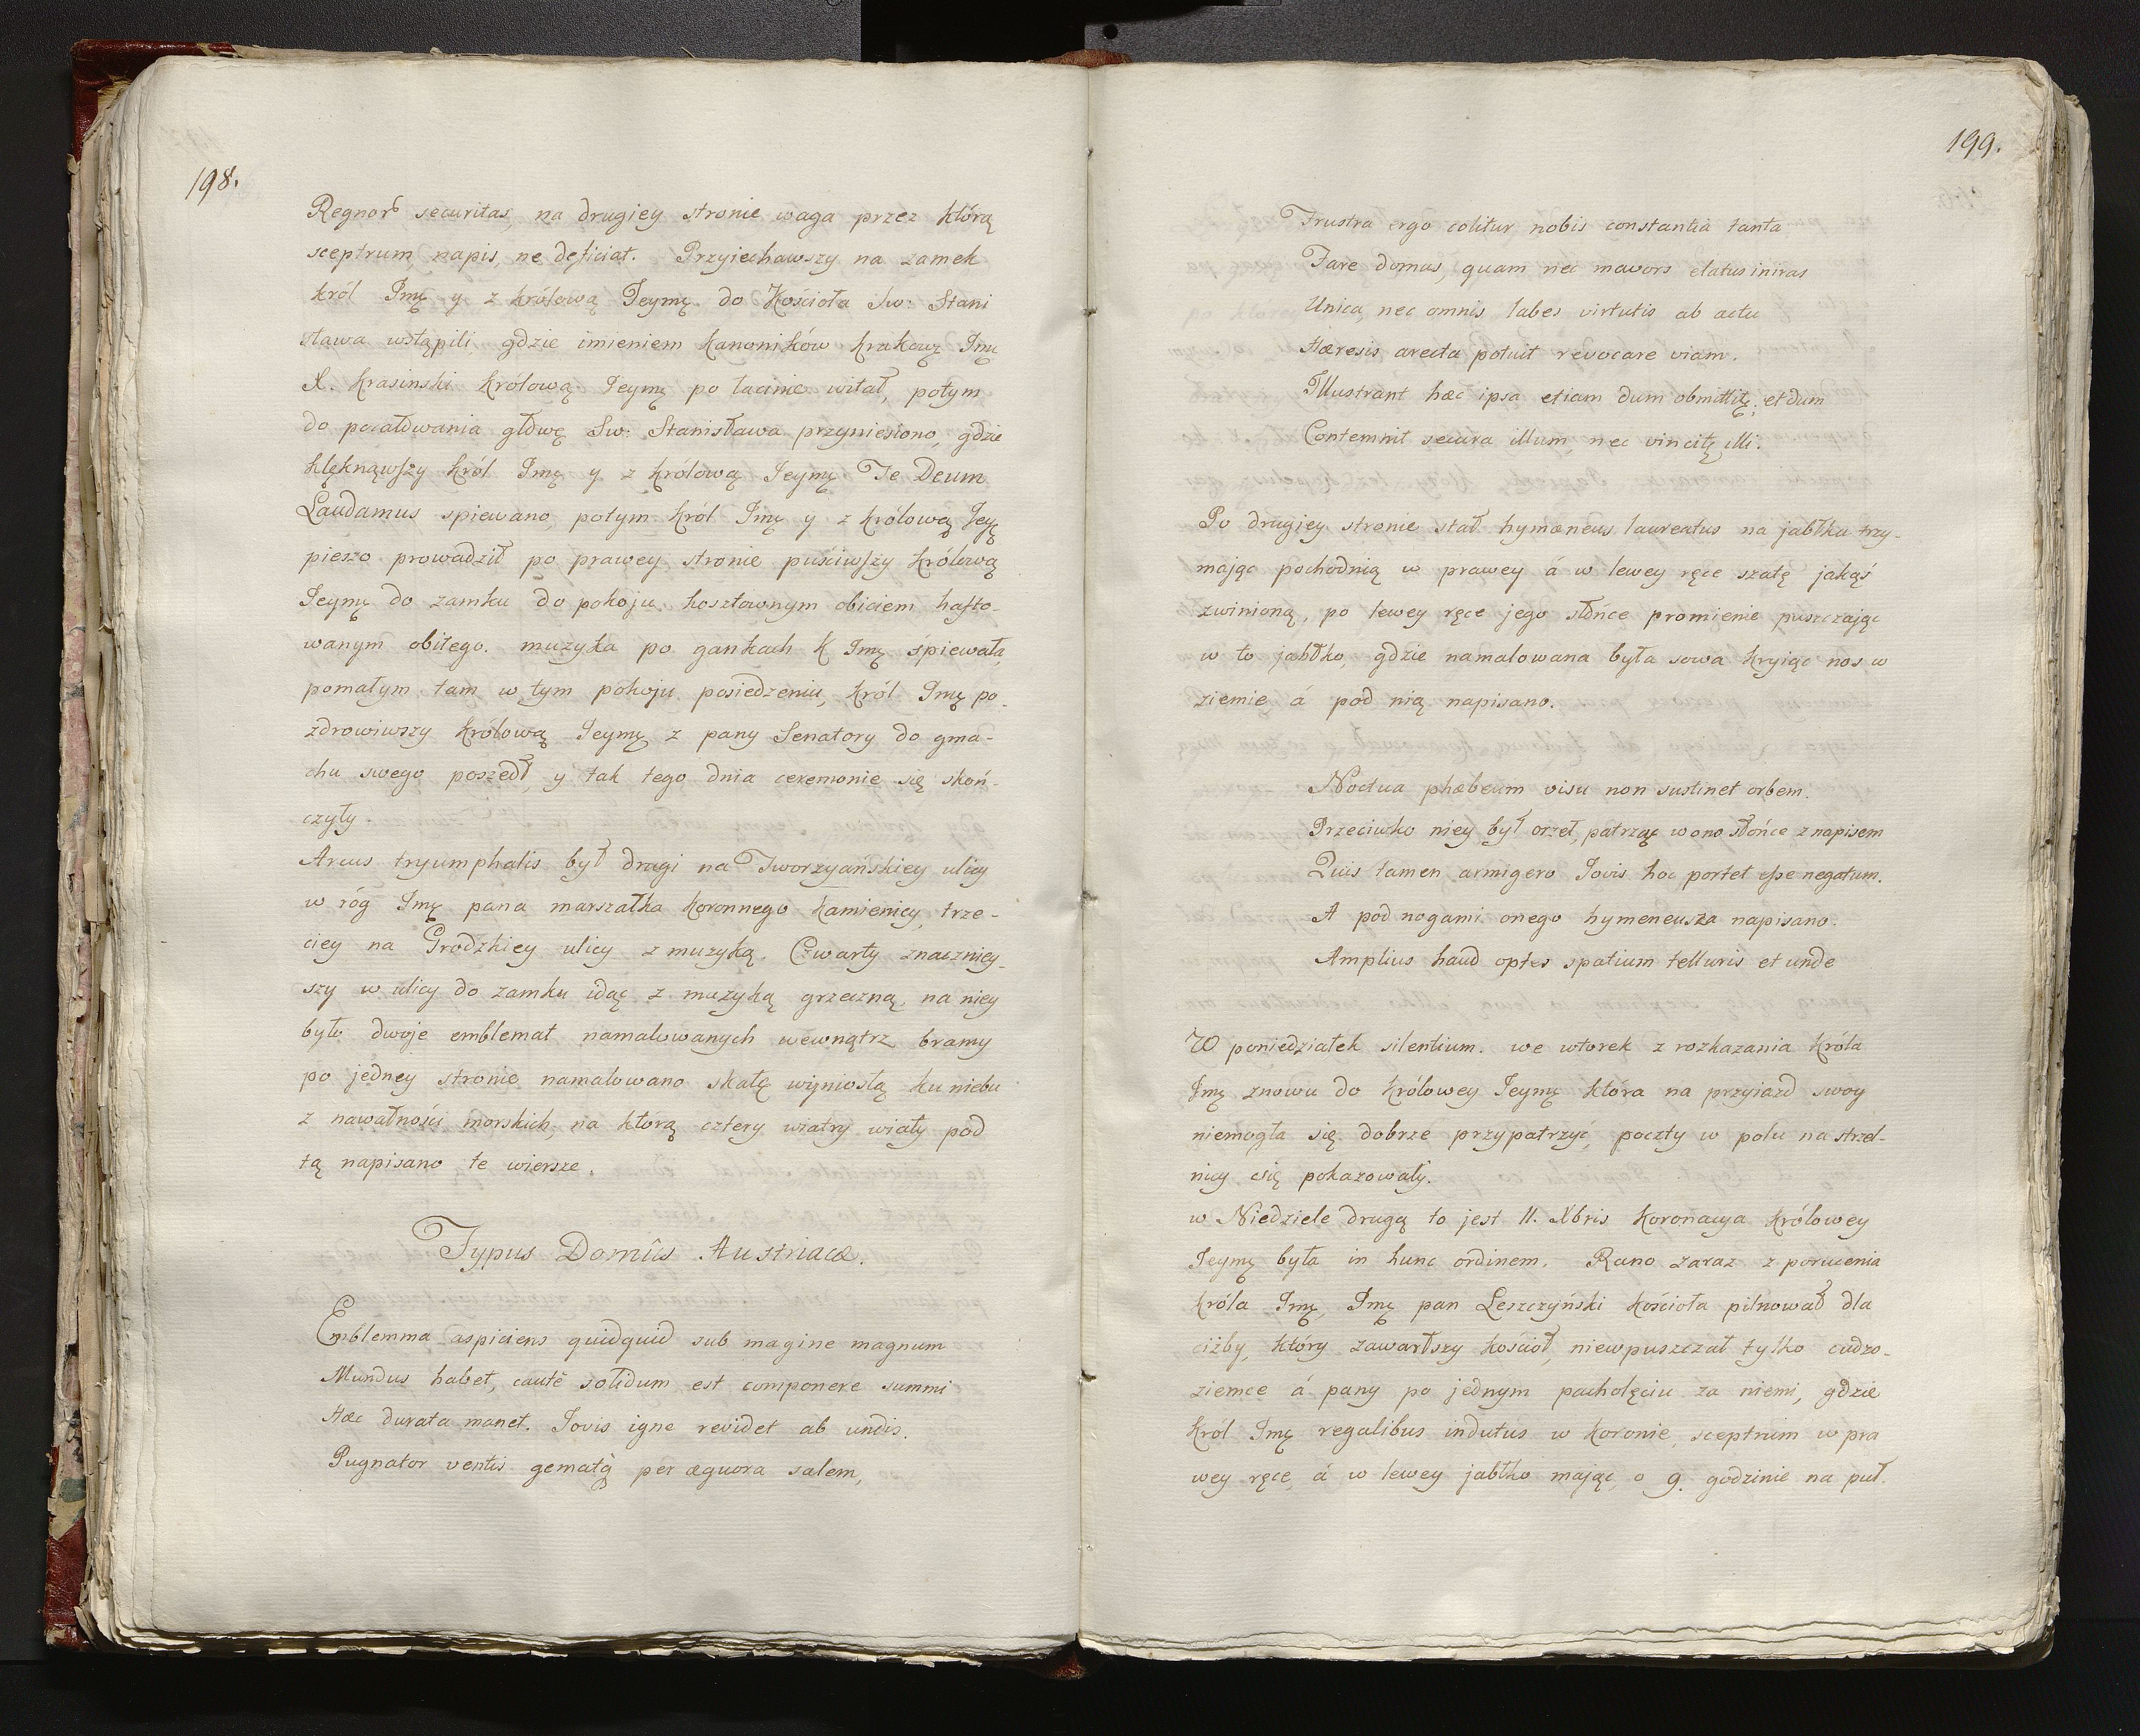 198.
Regnor̃ securitas, na drugiey stronie waga przez którą
sceptrum, napis, ne deficiat. Przyiechawszy na zamek
król Jmę y z królową Jeymę do Kościoła Sw: Stani
sława wstąpili, gdzie imieniem kanoników krakowę Jmę
X. Krasinski królową Jeymę po łacinie witał, potym
do pocałowania głowę Sw: Stanisława przyniesiono, gdzie
klęknąwszy król Jmę y z królową Jeymę Te Deum
Laudamus spiewano, potym król Jmę y z królową Jeyę
pieszo prowadził po prawey stronie puściwszy królową
Jeymę do zamku do pokoju kosztownym obiciem hafto-
wanym obitego. muzyka po gankach K Jmę śpiewała,
pomałym tam w tym pokoju posiedzeniu, król Jmę po-
zdrowiwszy królową Jeymę z pany Senatory do gma-
chu swego poszedł, y tak tego dnia ceremonie się skoń-
czyły.
Arcus tryumphalis był drugi na Tworzyańskiey ulicy
w róg Jmę pana marszałka koronnego kamienicy, trze-
ciey na Grodzkiey ulicy z muzyką. Czwarty znaczniey-
szy w ulicy do zamku idąc z muzyką grzeczną, na niey
było dwoje emblemat namalowanych wewnątrz bramy
po jedney stronie namalowano skałę wyniosłą ku niebu
z nawałności morskich, na którą cztery wiatry wiały pod
tą napisano te wiersze.
Typus Domûs Austriacæ.
Emblemma aspiciens quidquid sub magine magnum
Mundus habet, cautè solidum est componere summi
Hæc durata manet. Jovis igne revidet ab undis.
Pugnator ventis gematq́ per æquora salem,
199.
Frustra ergo colitur nobis constantia tanta
Fare domus, quam nec mavors elatus iniras
Unica, nec omnis labes virtutis ab actu
Hæresis arecta potuit revocare viam.
Illustrant hæc ipsa etiam dum obmittitę; et dum
Contemnit secura illum, nec vincitę illi.
Po drugiey stronie stał hymæneus laureatus na jabłku trzy-
mając pochodnią w prawey á w lewey ręce szatę jakąś
zwinioną, po lewey ręce jego słońce promienie puszczając
w to jabłko, gdzie namalowana była sowa kryiąc nos w
ziemie á pod nią napisano.
Noctua phæbeum visu non sustinet orbem.
Przeciwko niey był orzeł, patrząc w ono słońce z napisem
Quis tamen armigero Jovis hoc portet esse negatum.
A pod nogami onego hymeneusza napisano.
Amplius haud optes spatium telluris et unde
W poniedziałek silentium. we wtorek z rozkazania króla
Jmę znowu do królowey Jeymę która na przyiazd swoy
niemogła się dobrze przypatrzyć, poczty w polu na strzel-
nicy się pokazowały.
w Niedziele drugą to jest 11. Xbris koronacya królowey
Jeymę była in hunc ordinem. Rano zaraz z poruczenia
króla Jmę, Jmę pan Leszczyński kościoła pilnował dla
ciżby, który zawarłszy kościoł, niewpuszczał tylko cudzo-
ziemce á pany po jednym pacholęciu za niemi, gdzie
król Jmę regalibus indutus w koronie, sceptrum w pra
wey ręce, á w lewey jabłko mając, o 9. godzinie na puł.